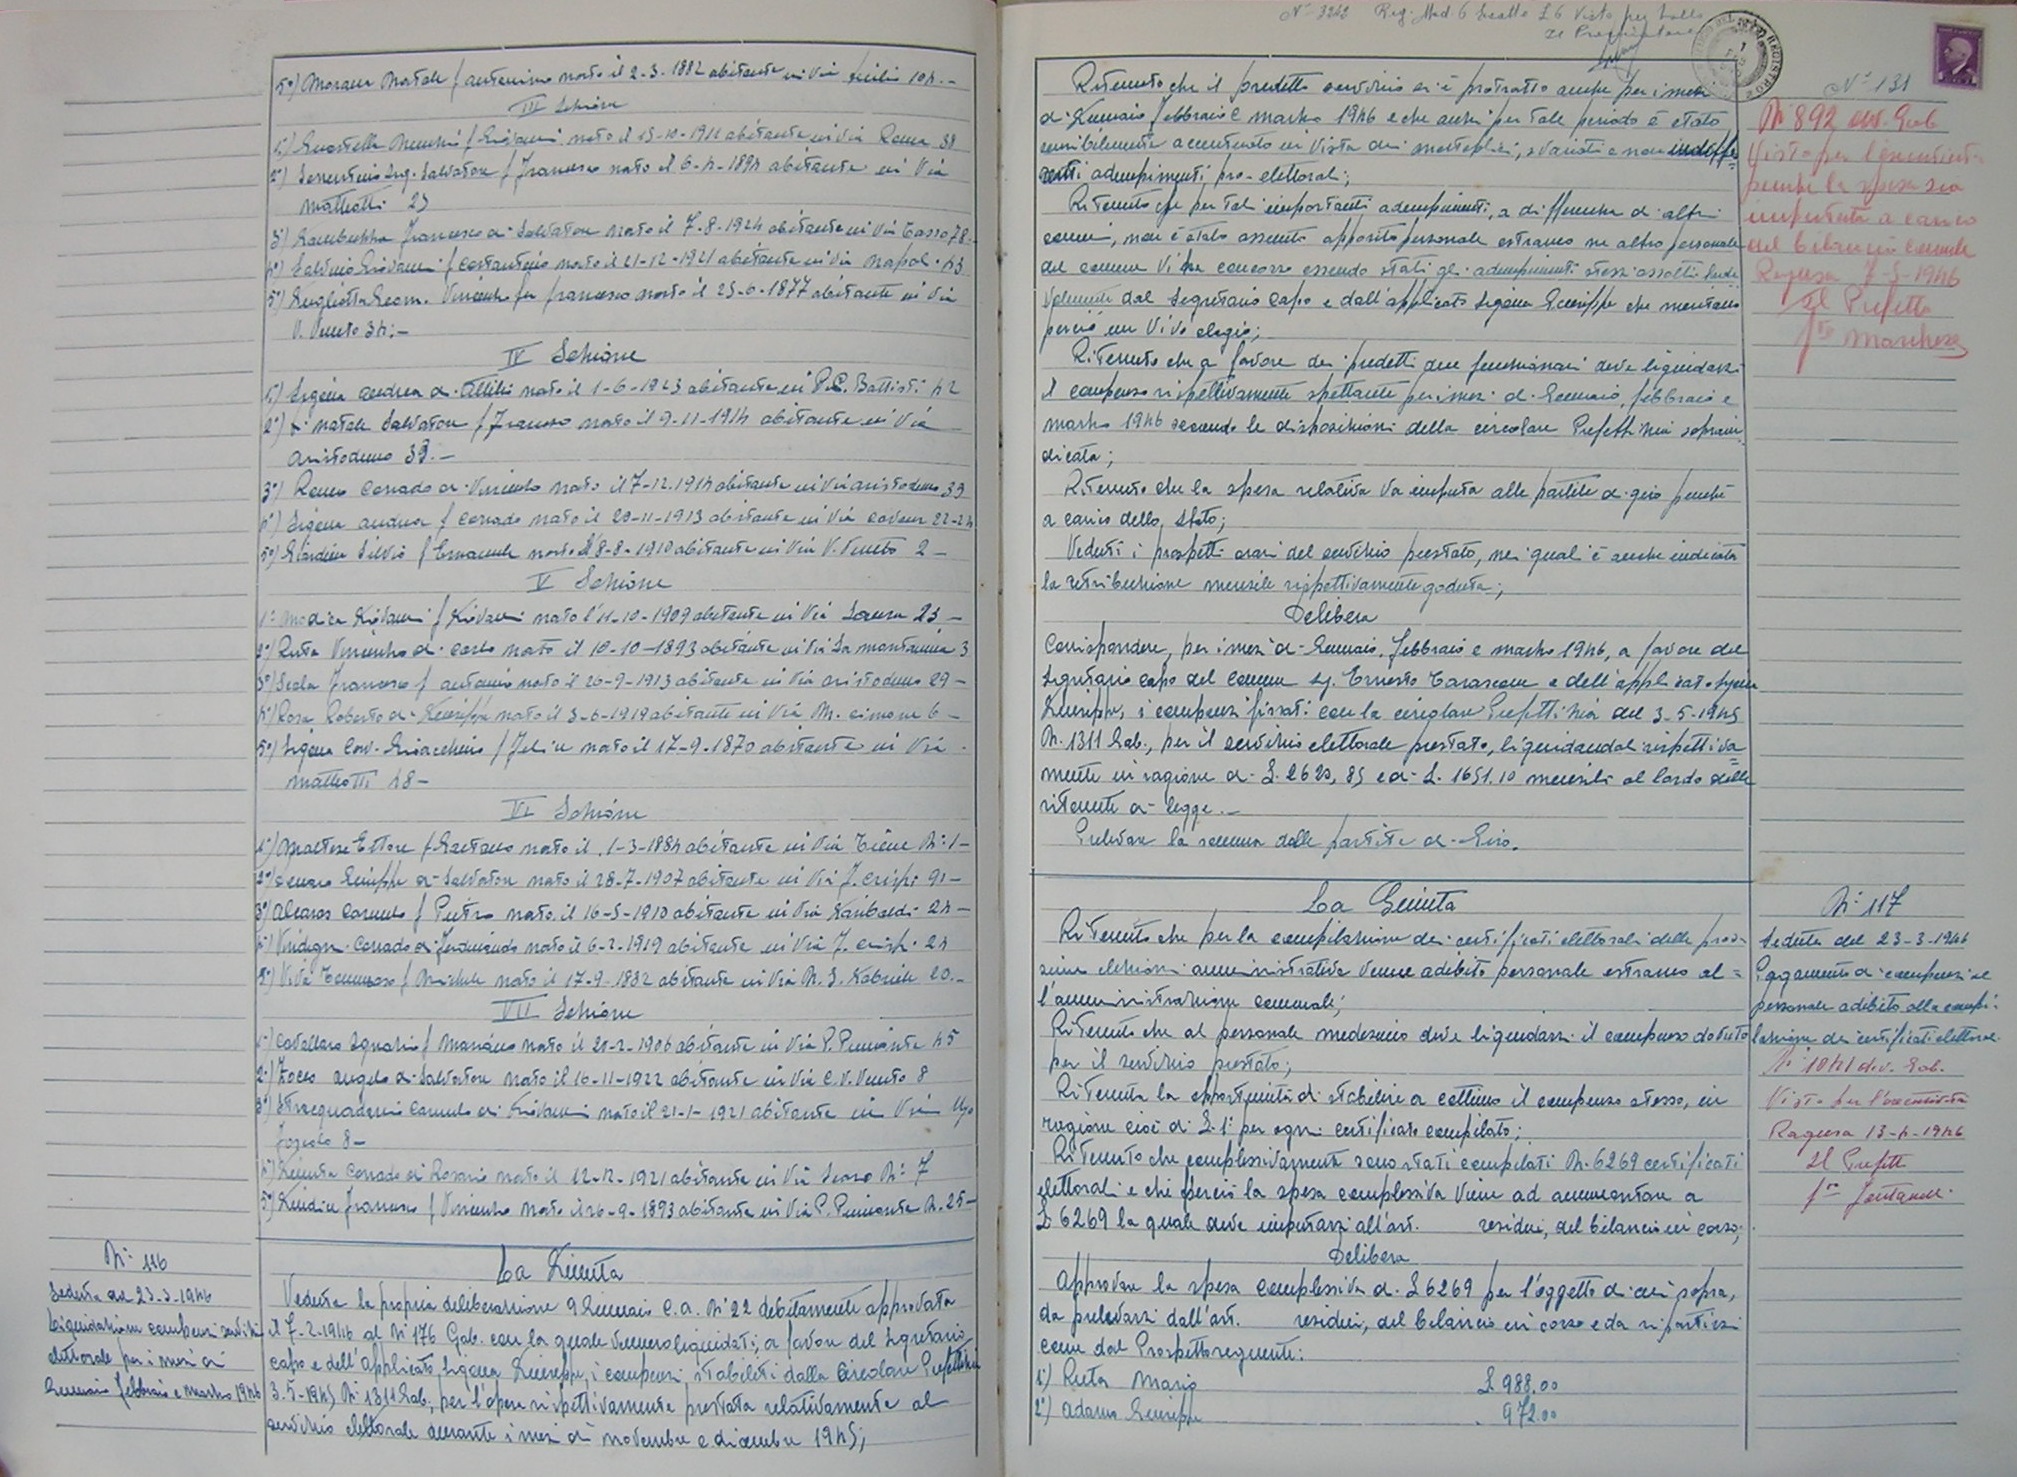 5°) Morana Natale f/ antonino nato il 2-3-1882 abitante in Via Sicilia 104.-
III Sezione
nato il 15-10-1911 abitante in Via Roma 38
2°) Sorrentino Ing. Salvatore f/ Francesco nato il 6-4-1894 abitante in Via
Matteotti 23
3°) Francesco di Salvatore nato il 7-8-1924 abitante in Via Tasso 78-
4°) Salvino Giovanni f/ Costantino nato il 21-12-1921 abitante in Via Napoli 43
5°) Geom. Vincenzo fu Francesco nato il 23-6-1877 abitante in Via
V. Veneto 34;-
IV Sezione
1°) Sigona Andrea di Attilio nato il 1-6-1923 abitante in P.C. Battisti 42
2°) Di Natale Salvatore f/ Francesco nato il 9-11-1914 abitante in Via
Aristodemo 39.-
3°) Corrado di Vincenzo nato il 7-12-1914 abitante in Via Aristodemo 39
4°) Sigona Andrea f/ Corrado nato il 20-11-1913 abitante in Via Cavour 22-24
5°) Giardina Silvio f/ Emanuele nato il 8-8-1910 abitante in Via V. Veneto 2-
V Sezione
1° Modica Giovanni f/ Giovanni nato l'11-10-1909 abitante in Via 23-
2°) Ruta Vincenzo di Carlo nato il 10-10-1893 abitante in Via La Marmora 3
3°) Scala Francesco f/ Antonio nato il 26-9-1913 abitante in Via Aristodemo 29-
4°) Rosa Roberto di Giuseppe nato il 3-6-1919 abitante in Via M. Cimone 6-
5°) Sigona Cav. Gioacchino f/ Felice nato il 17-9-1870 abitante in Via
Matteotti 18-
VI Sezione
1°) Ettore f/ Gaetano nato il 1-3-1884 abitante in Via N: 1-
2°) Giuseppe di Salvatore nato il 28-7-1907 abitante in Via F. Crispi 91-
3°) Carmelo f/ Pietro nato il 16-5-1910 abitante in Via Garibaldi 24-
4°) Corrado di Ferdinando nato il 6-2-1919 abitante in Via F. Crispi 24
5°) Viva Tommaso f/ Michele nato il 17-9-1882 abitante in Via M. S. Gabriele 20.-
VII Sezione
1°) Cavallaro Ignazio f/ Mariano nato il 21-2-1906 abitante in Via P. Piemonte 45
2°) Zocco Angelo di Salvatore nato il 16-11-1922 abitante in Via C. V. Veneto 8
3°) Stracquadanio Carmelo di Giovanni nato il 21-1-1921 abitante in Via Ugo
Foscolo 8-
4°) Giunta Corrado di Rosario nato il 12-12-1921 abitante in Via N: 7
5°) Francesco f/ Vincenzo nato il 26-9-1893 abitante in Via P. Piemonte N. 25-
N: 116
Seduta del 23-3-1946
Liquidazione compensi servizio
elettorale per i mesi di
Gennaio febbraio e marzo 1946
La Giunta
Veduta la propria deliberazione 9 Gennaio c.a. N: 22 debitamente approvata
il 7-2-1946 al N: 176 Gab. con la quale vennero liquidati, a favore del Segretario
capo e dell'applicato Sigona Giuseppe, i compensi stabiliti dalla Circolare Prefettizia
3-5-1945 N: 1311 Gab., per l'opera rispettivamente prestata relativamente al
servizio elettorale durante i mesi di novembre e dicembre 1945;
N° 3242 Reg. Mod. 6 L 6 Visto per bollo
Il Procuratore
Ritenuto che il predetto servizio si è protratto anche per i mesi
di Gennaio febbraio e marzo 1946 e che anzi per tale periodo è stato
sensibilmente accentuato in vista dei molteplici, svariati e non indiffe=
renti adempimenti pro-elettorali;
Ritenuto che per tali importanti adempimenti, a differenza di altri
comuni, non è stato assunto apposito personale estraneo ne altro personale
del comune vi ha concorso essendo stati gli adempimenti stessi assolti lode
volmente dal Segretario Capo e dall'applicato Sigona Giuseppe che meritano
perciò un vivo elogio;
Ritenuto che a favore dei predetti due funzionari deve liquidarsi
il compenso rispettivamente spettante per i mesi di Gennaio, febbraio e
marzo 1946 secondo le disposizioni della circolare Prefettizia soprain
dicata;
Ritenuto che la spesa relativa va imputa alle partite di giro perchè
a carico dello Stato;
Veduti i prospetti orari del servizio prestato, nei quali è anche indicata
la retribuzione mensile rispettivamente goduta;
Delibera
Corrispondere, per i mesi di Gennaio, febbraio e marzo 1946, a favore del
Segretario capo del Comune Sig. Ernesto Tarascone e dell'applicato Sigona
Giuseppe, i compensi fissati con la circolare Prefettizia del 3-5-1945
N. 1311 Gab., per il servizio elettorale prestato, liquidandoli rispettiva=
mente in ragione di L. 2620,85 e di L. 1651.10 mensili al lordo delle
ritenute di legge.-
Prelevare la somma dalle partite di Giro.
N° 131
N: 892 Div. Gab
Visto per l'esecutività
purchè la spesa sia
imputata a carico
del bilancio comunale
Ragusa 7-5-1946
Il Prefetto
fto Marchese
La Giunta
Ritenuto che per la compilazione dei certificati elettorali delle pros=
sime elezioni amministrative venne adibito personale estraneo al=
l'amministrazione comunale;
Ritenuto che al personale medesimo deve liquidarsi il compenso dovuto
per il servizio prestato;
Ritenuta la opportunità di stabilire a cottimo il compenso stesso, in
ragione cioè di L. 1: per ogni certificato compilato;
Ritenuto che complessivamente sono stati compilati N. 6269 certificati
elettorali e che perciò la spesa complessiva viene ad ammontare a
L 6269 la quale deve imputarsi all'art. residui, del bilancio in corso;
Delibera
Approvare la spesa complessiva di L 6269 per l'oggetto di cui sopra,
da prelevarsi dall'art. residui, del bilancio in corso e da ripartirsi
come dal Prospetto seguente:
1°) Ruta Mario L 988.00
2°) Adamo Giuseppe . 972.00
N: 117
Seduta del 23-3-1946
Pagamento di compensi al
personale adibito alla compi=
lazione dei certificati elettorali.
N: 1041 div. Gab.
Visto per l'esecutività
Ragusa 13-4-1946
Il Prefetto
fto